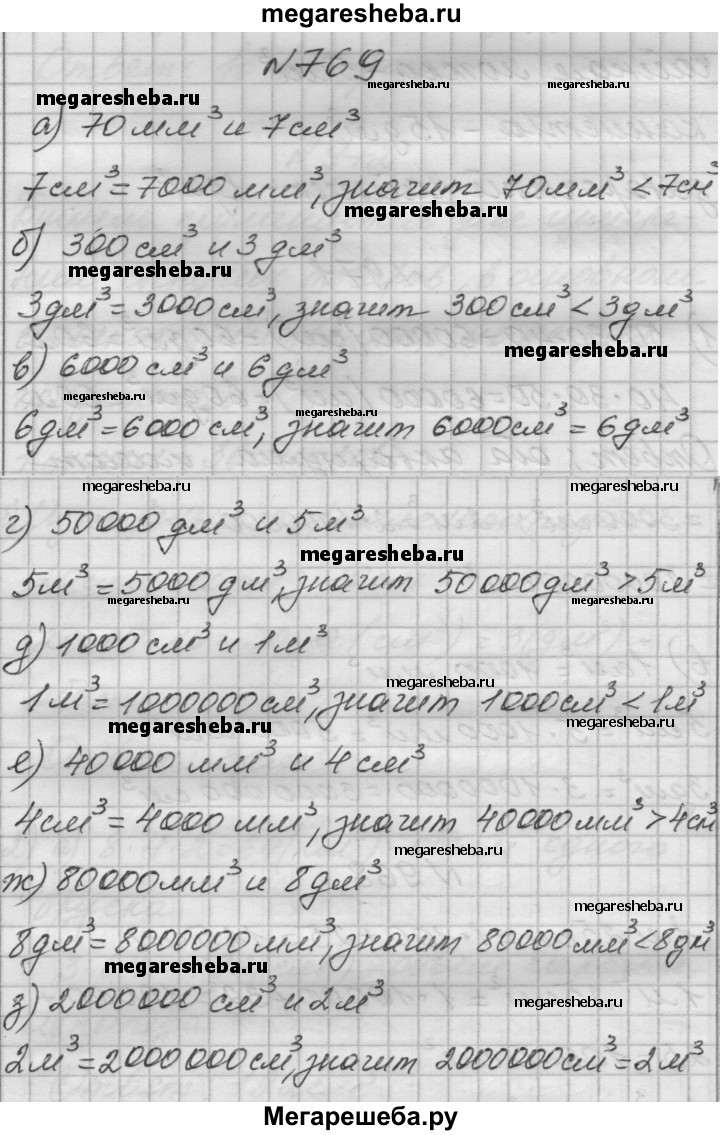 megaresheba.ru
N769
megaresheba.ru megaresheba.ru
а) 70 мм³ и 7 см³
7 см³ = 7000 мм³, значит 70 мм³ < 7 см³
megaresheba.ru
б) 300 см³ и 3 дм³
megaresheba.ru
3 дм³ = 3000 см³, значит 300 см³ < 3 дм³
megaresheba.ru
в) 6000 см³ и 6 дм³
megaresheba.ru megaresheba.ru
6 дм³ = 6000 см³, значит 6000 см³ = 6 дм³
megaresheba.ru megaresheba.ru
г) 50000 дм³ и 5 м³
megaresheba.ru
5 м³ = 5000 дм³, значит 50000 дм³ > 5 м³
megaresheba.ru megaresheba.ru megaresheba.ru
д) 1000 см³ и 1 м³
megaresheba.ru
1 м³ = 1000000 см³, значит 1000 см³ < 1 м³
megaresheba.ru megaresheba.ru
е) 40000 мм³ и 4 см³
4 см³ = 4000 мм³, значит 40000 мм³ > 4 см³
megaresheba.ru
ж) 80000 мм³ и 8 дм³
megaresheba.ru
8 дм³ = 8000000 мм³, значит 80000 мм³ < 8 дм³
megaresheba.ru
з) 2000000 см³ и 2 м³
megaresheba.ru
2 м³ = 2000000 см³, значит 2000000 см³ = 2 м³
Мегарешеба.ру